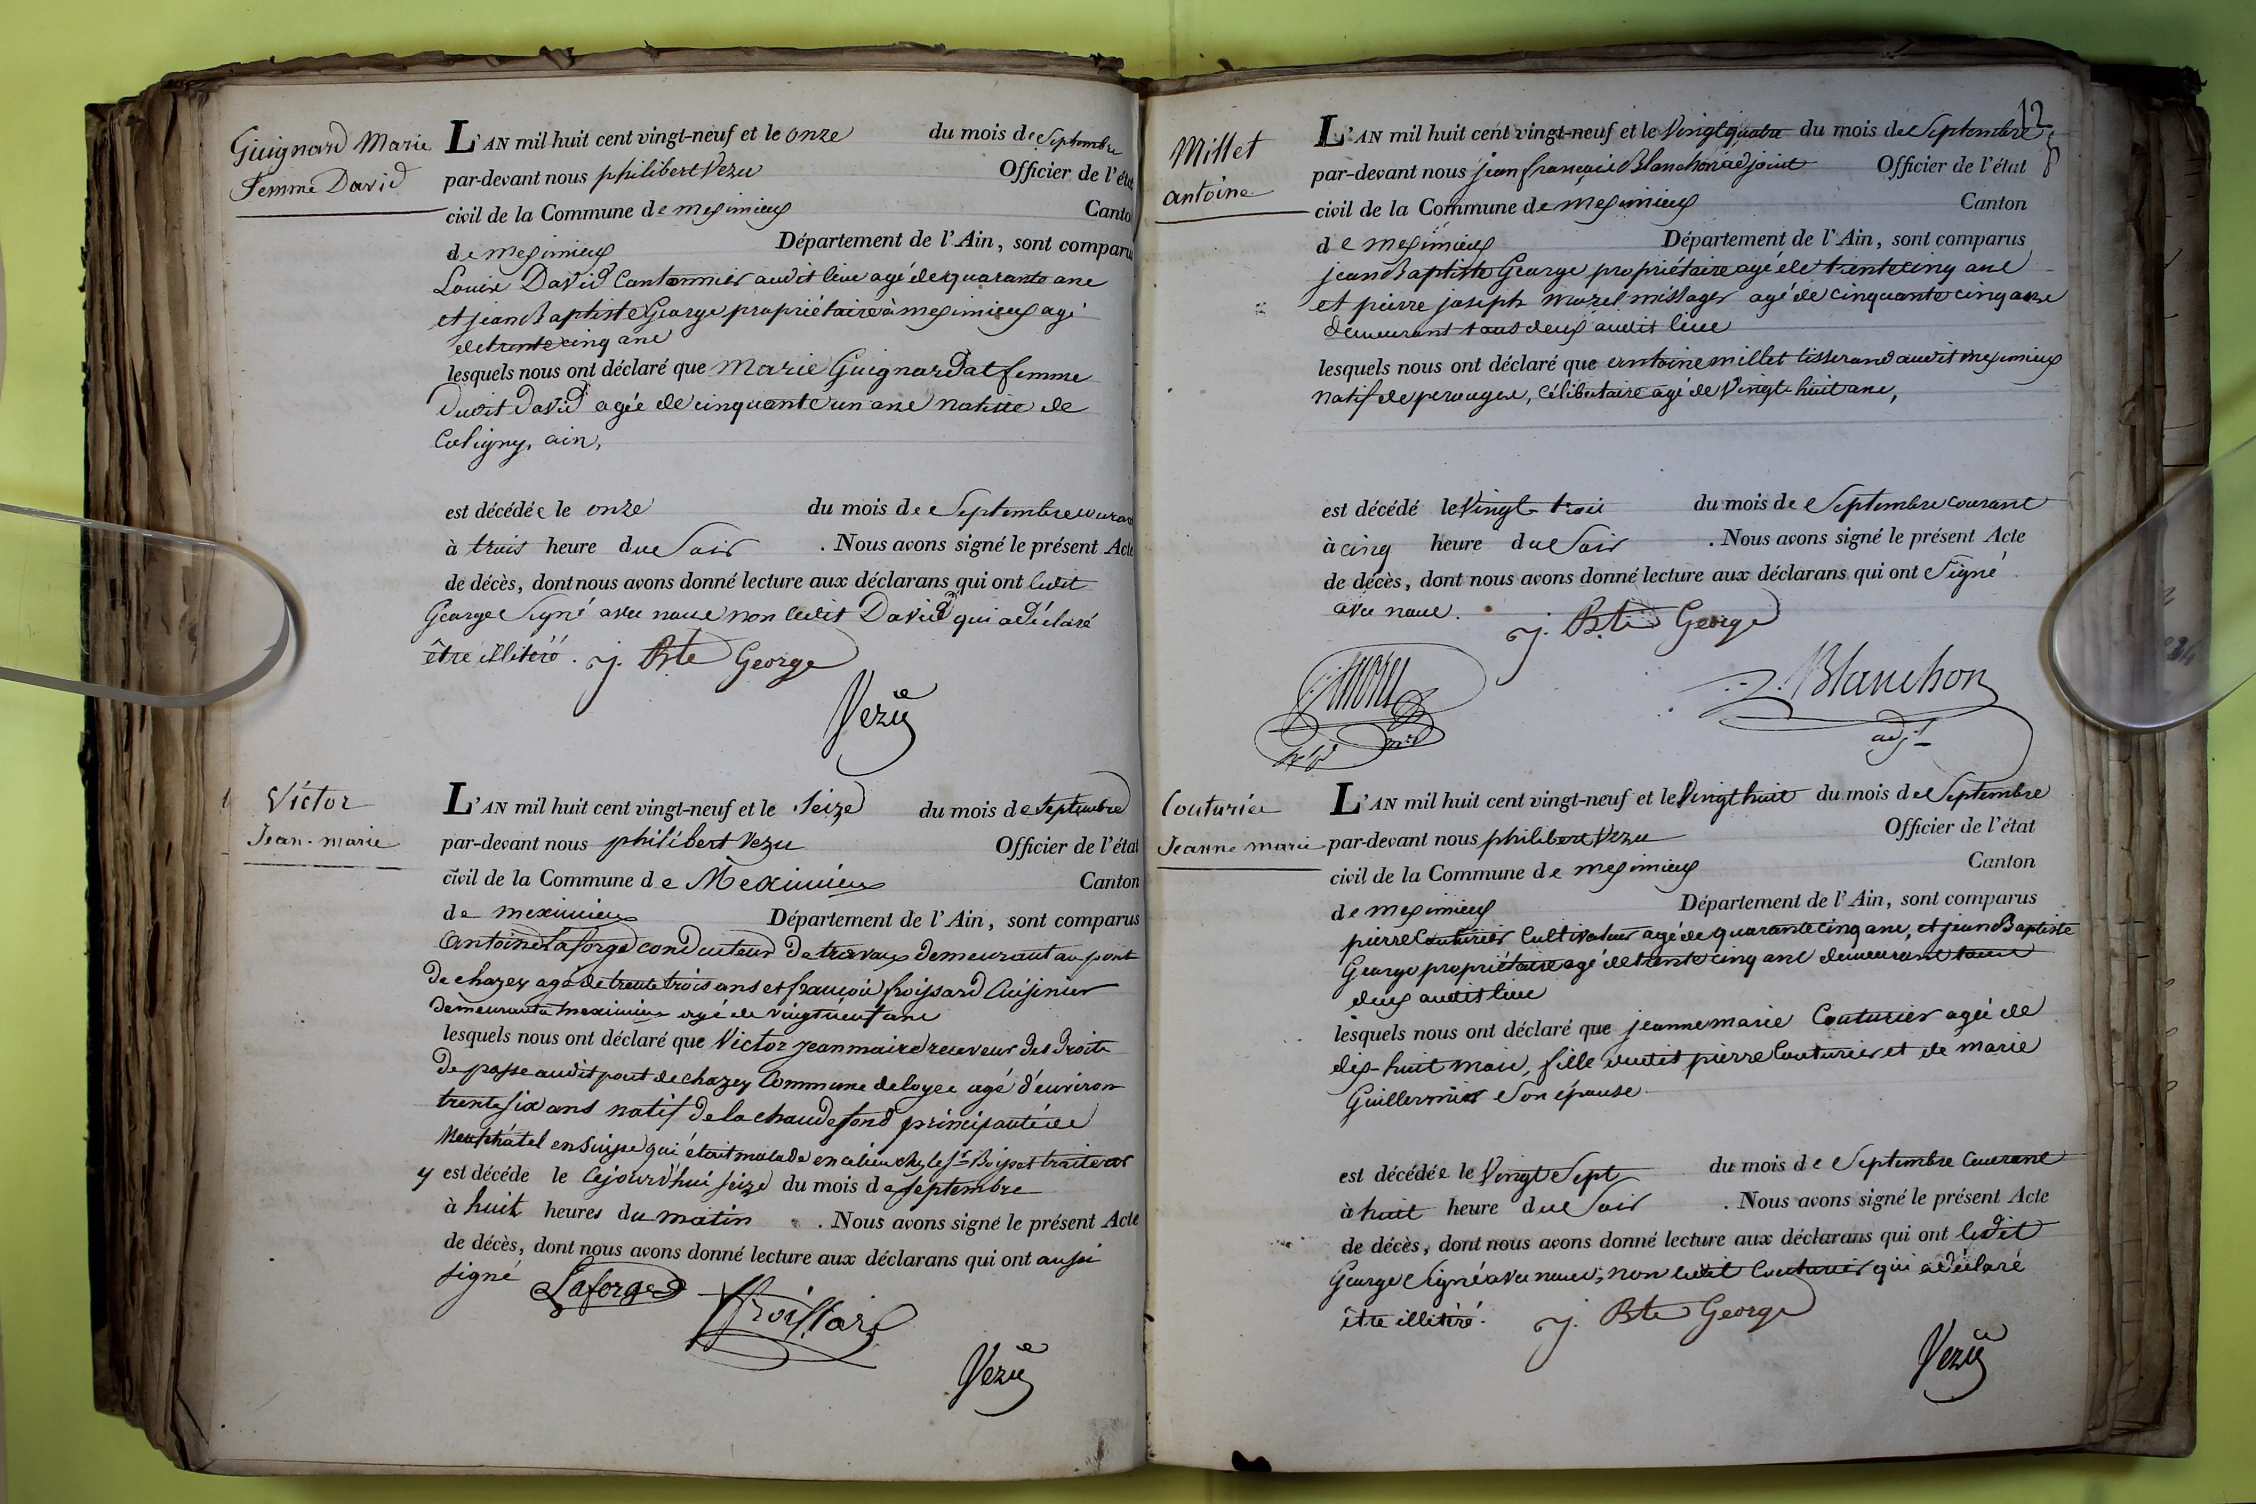 Guignard Marie
Femme David
L'AN mil huit cent vingt-neuf et le onze du mois de Septembre
par-devant nous philibert Vezu Officier de l'état
civil de la Commune de meximieux Canton
de meximieux Département de l'Ain, sont comparus
Louis David Cantonnier audit lieu agé de quarante ans
et jean Baptiste George propriétaire à meximieux agé
de trente cinq ans
lesquels nous ont déclaré que Marie Guignardat femme
Dudit David agée de cinquante un ans native de
Coligny, ain,
est décédée le onze du mois de Septembre courant
à trois heure du Soir . Nous avons signé le présent Acte
de décès, dont nous avons donné lecture aux déclarans qui ont ledit
George Signé avec nous non ledit David qui a déclaré
être illitéré. j. Bte George
Vezu
Victor
Jean-marie
L'AN mil huit cent vingt-neuf et le Seize du mois de Septembre
par-devant nous philibert Vezu Officier de l'état
civil de la Commune de Meximieux Canton
de meximieux Département de l'Ain, sont comparus
Antoine Laforge conducteur de travaux demeurant au pont
de chazey agé de trente trois ans et françois froissard Cuisinier
demeurant a meximieux agé de vingt neuf ans
lesquels nous ont déclaré que Victor jean maire receveur des droits
de passe audit pont de chazey Commune de loyes agé d'environ
trente six ans natif de la chaudefond principauté de
Neufchâtel en Suisse qui était malade en ce lieu chez le Sr Boisset traiteur
y est décéde le cejourd'hui seize du mois de septembre
à huit heures du matin . Nous avons signé le présent Acte
de décès, dont nous avons donné lecture aux déclarans qui ont aussi
signé Laforge
Froissard
Vezu
12
Millet
antoine
L'AN mil huit cent vingt-neuf et le Vingt quatre du mois de Septembre
par-devant nous jean françois Blanchon adjoint Officier de l'état
civil de la Commune de meximieux Canton
de meximieux Département de l'Ain, sont comparus
jean Baptiste George propriétaire agé de trente cinq ans
et pierre joseph mozet missager agé de cinquante cinq ans
demeurant tous deux audit lieu
lesquels nous ont déclaré que antoine millet tisserand audit meximieux
natif de perouges, célibataire agé de Vingt huit ans,
est décédé le Vingt trois du mois de Septembre courant
à cinq heure du Soir . Nous avons signé le présent Acte
de décès, dont nous avons donné lecture aux déclarans qui ont Signé
avec nous. j. Bte George
Blanchon
adjt
Couturier
Jeanne marie
L'AN mil huit cent vingt-neuf et le Vingt huit du mois de Septembre
par-devant nous philibert Vezu Officier de l'état
civil de la Commune de meximieux Canton
de meximieux Département de l'Ain, sont comparus
pierre Couturier Cultivateur agé de quarante cinq ans, et jean Baptiste
George propriétaire agé de trente cinq ans demeurant tous
deux audit lieu
lesquels nous ont déclaré que jeanne marie Couturier agée de
dix-huit mois, fille dudit pierre Couturier et de marie
Guillermier Son épouse
est décédée le Vingt Sept du mois de Septembre Courant
à huit heure du Soir . Nous avons signé le présent Acte
de décès, dont nous avons donné lecture aux déclarans qui ont ledit
George Signé avec nous, non ledit Couturier qui a déclaré
être illitéré. j. Bte George
Vezu